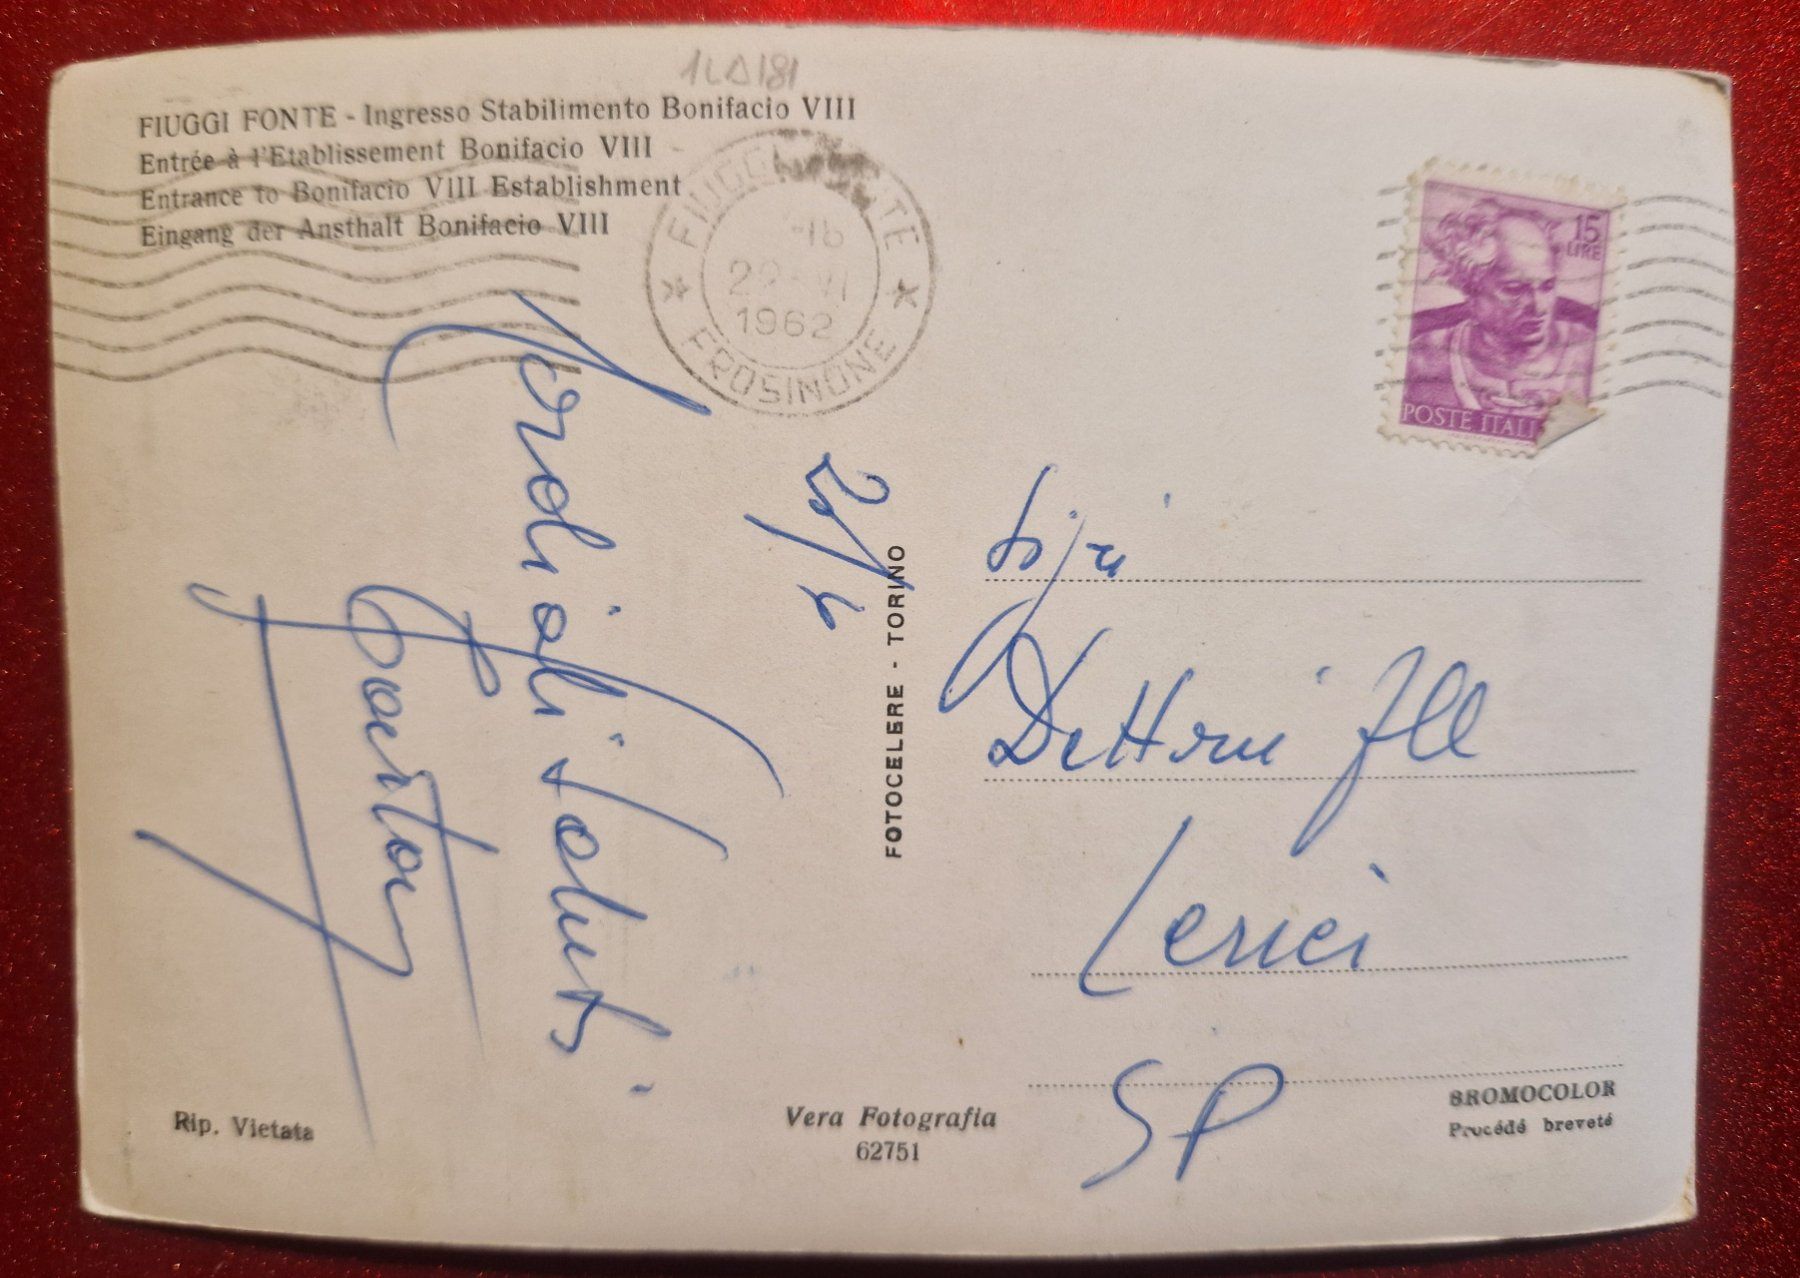 1LD181
FIUGGI FONTE - Ingresso Stabilimento Bonifacio VIII
Entrée à l'Etablissement Bonifacio VIII
Entrance to Bonifacio VIII Establishment
Eingang der Ansthalt Bonifacio VIII
FIUGGI FONTE
29-VI
1962
* FROSINONE *
15
LIRE
POSTE ITALI
Cordiali saluti
FOTOCELERE - TORINO
Lerici
SP
Rip. Vietata
Vera Fotografia
62751
BROMOCOLOR
Procédé breveté